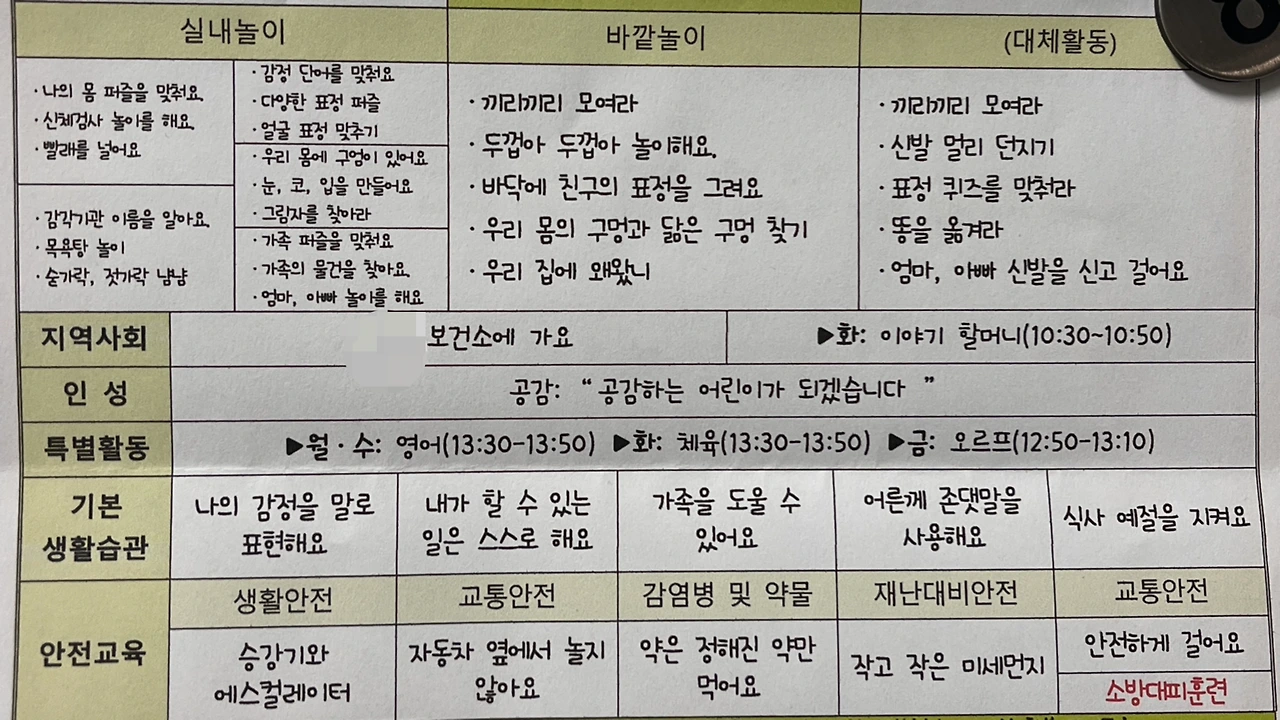 실내놀이
바깥놀이
(대체활동)
· 나의 몸 퍼즐을 맞춰요.
· 신체검사 놀이를 해요.
· 빨래를 널어요
· 감각기관 이름을 알아요.
· 목욕탕 놀이
· 숟가락, 젓가락 냠냠
· 감정 단어를 맞춰요
· 다양한 표정 퍼즐
· 얼굴 표정 맞추기
· 우리 몸에 구멍이 있어요
· 눈, 코, 입을 만들어요
· 그림자를 찾아라
· 가족 퍼즐을 맞춰요
· 가족의 물건을 찾아요.
· 엄마, 아빠 놀이를 해요
· 끼리끼리 모여라
· 두껍아 두껍아 놀이해요.
· 바닥에 친구의 표정을 그려요
· 우리 몸의 구멍과 닮은 구멍 찾기
· 우리 집에 왜왔니
· 끼리끼리 모여라
· 신발 멀리 던지기
· 표정 퀴즈를 맞춰라
· 똥을 옮겨라
· 엄마, 아빠 신발을 신고 걸어요
지역사회
보건소에 가요
▶화: 이야기 할머니(10:30~10:50)
인 성
공감: “ 공감하는 어린이가 되겠습니다 ”
특별활동
▶월 · 수: 영어(13:30-13:50) ▶화: 체육(13:30-13:50) ▶금: 오르프(12:50-13:10)
기본
생활습관
나의 감정을 말로
표현해요
내가 할 수 있는
일은 스스로 해요
가족을 도울 수
있어요
어른께 존댓말을
사용해요
식사 예절을 지켜요
안전교육
생활안전
교통안전
감염병 및 약물
재난대비안전
교통안전
승강기와
에스컬레이터
자동차 옆에서 놀지
않아요
약은 정해진 약만
먹어요
작고 작은 미세먼지
안전하게 걸어요
소방대피훈련